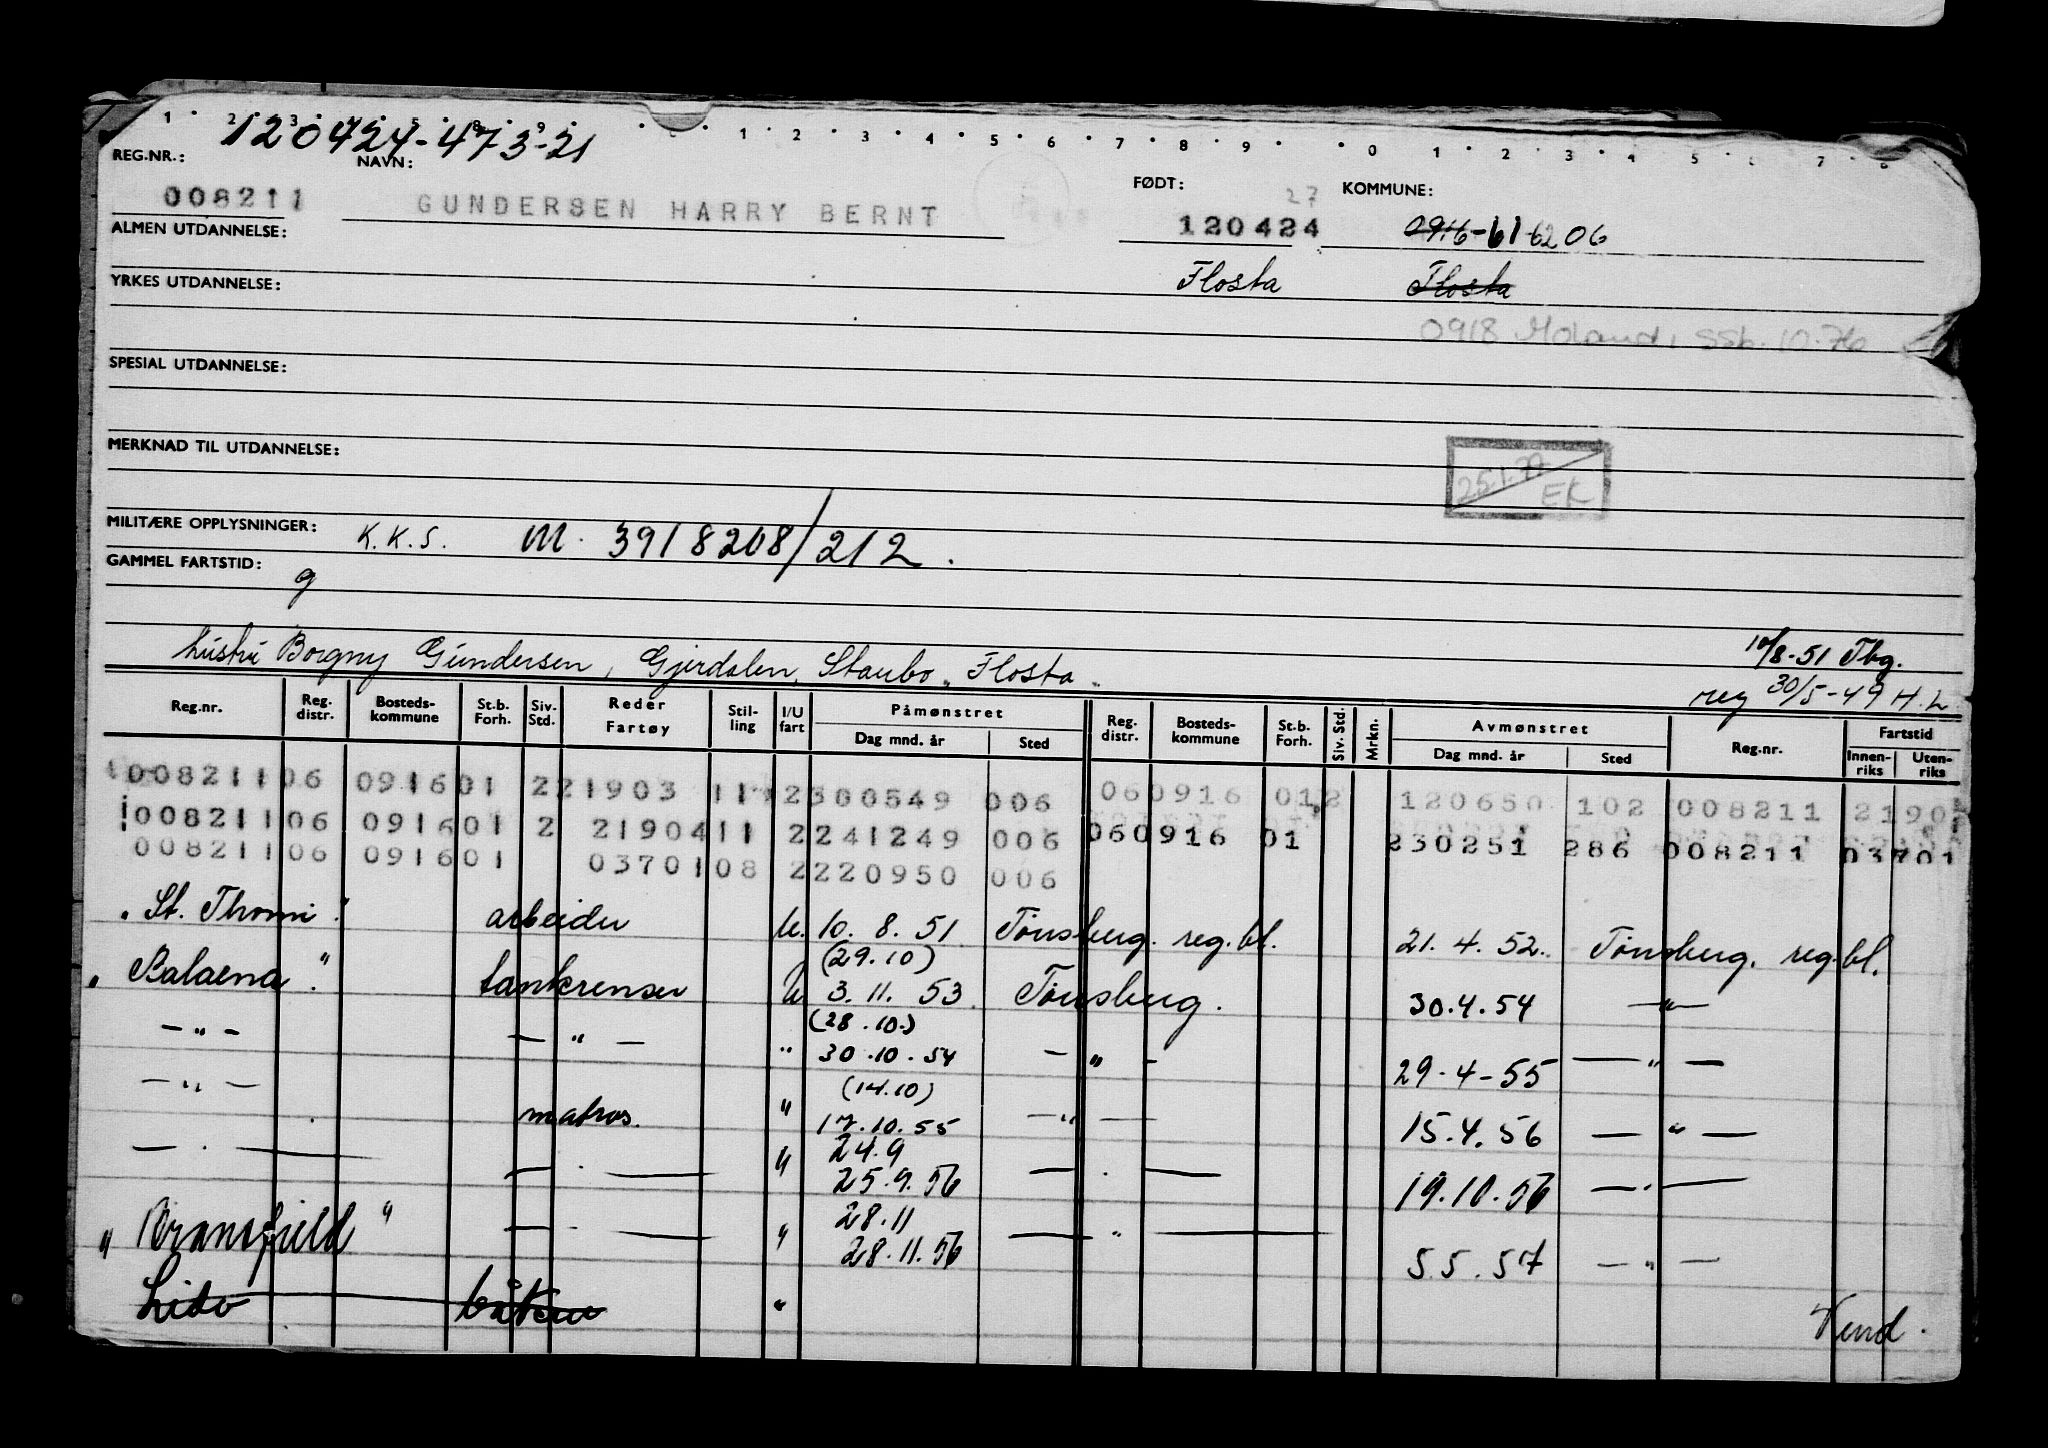 120424-473-21
REG.NR.: NAVN: FØDT: KOMMUNE:
008211 GUNDERSEN HARRY BERNT 120424 27 0916-61-6206
ALMEN UTDANNELSE:
Flosta Flosta
YRKES UTDANNELSE:
0918 Moland, SSb. 10.76
SPESIAL UTDANNELSE:
MERKNAD TIL UTDANNELSE:
25.1.79 EK
MILITÆRE OPPLYSNINGER: K.K.S. M. 3918208/212.
GAMMEL FARTSTID: g
hustru Borgny Gundersen, Gjerdalen, Staubo, Flosta.
10/8-51 Tbg.
reg 30/5-49 H.L
Reg.nr. Reg. distr. Bosteds-kommune St.b. Forh. Siv. Std. Reder Fartøy Stil-ling I/U fart Påmønstret Dag mnd. år Sted Reg. distr. Bosteds-kommune St.b. Forh. Siv. Std. Mrkn. Avmønstret Dag mnd. år Sted Reg.nr. Fartstid Innen-riks Uten-riks
008211 06 0916 01 2 21903 11 2 300549 006 06 0916 01 2 120650 102 008211 2190
008211 06 0916 01 2 21904 11 2 241249 006 06 0916 01 230251 286 008211 03701
008211 06 0916 01 03701 08 2 220950 006
"St. Thomi" arbeider U. 10. 8. 51 Tønsberg. reg.bl. 21. 4. 52. Tønsberg. reg.bl.
(29.10)
"Balaena". tankrenser U 3. 11. 53. Tønsberg. 30.4.54 —"—
(28.10.)
— " — — " — " 30.10.54 — " — 29.4-55 — " —
(14.10)
— " — matros. " 17.10.55 — " — 15.4.56 — " —
24.9
— . — — . — " 25.9.56 — . — 19.10.56 — " —
28.11
"Bransfield" — . — " 28.11.56 — " — 5.5.57 — " —
Lido båtsm "
Vend.